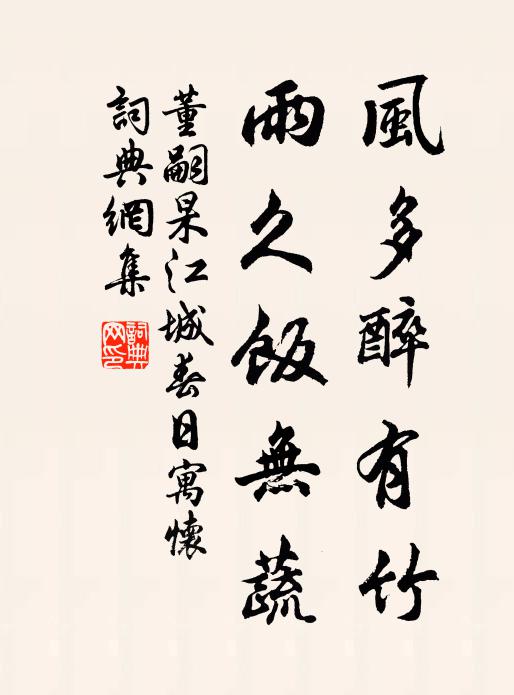 風多醉有竹
雨久飯無蔬
董嗣杲江城春日寓懷
詞典網集
詞典
网印